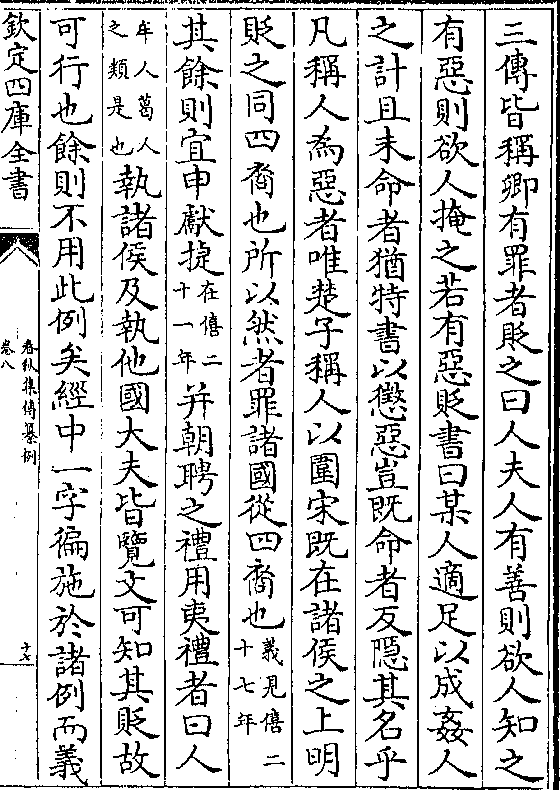 三傳皆稱卿有罪者貶之曰人夫人有善則欲人知之
有惡則欲人掩之若有惡貶書曰某人適足以成姦人
之計且未命者猶特書以懲惡豈既命者反隱其名乎
凡稱人為惡者唯楚子稱人以圍宋既在諸侯之上明
貶之同四裔也所以然者罪諸國從四裔也義見僖二十七年
其餘則宜申獻捷在僖二十一年并朝聘之禮用夷禮者曰人
牟人葛人之類是也執諸侯及執他國大夫皆覽文可知其貶故
可行也餘則不用此例矣經中一字徧施於諸例而義
欽定四庫全書
春秋集傳纂例
卷八
十七